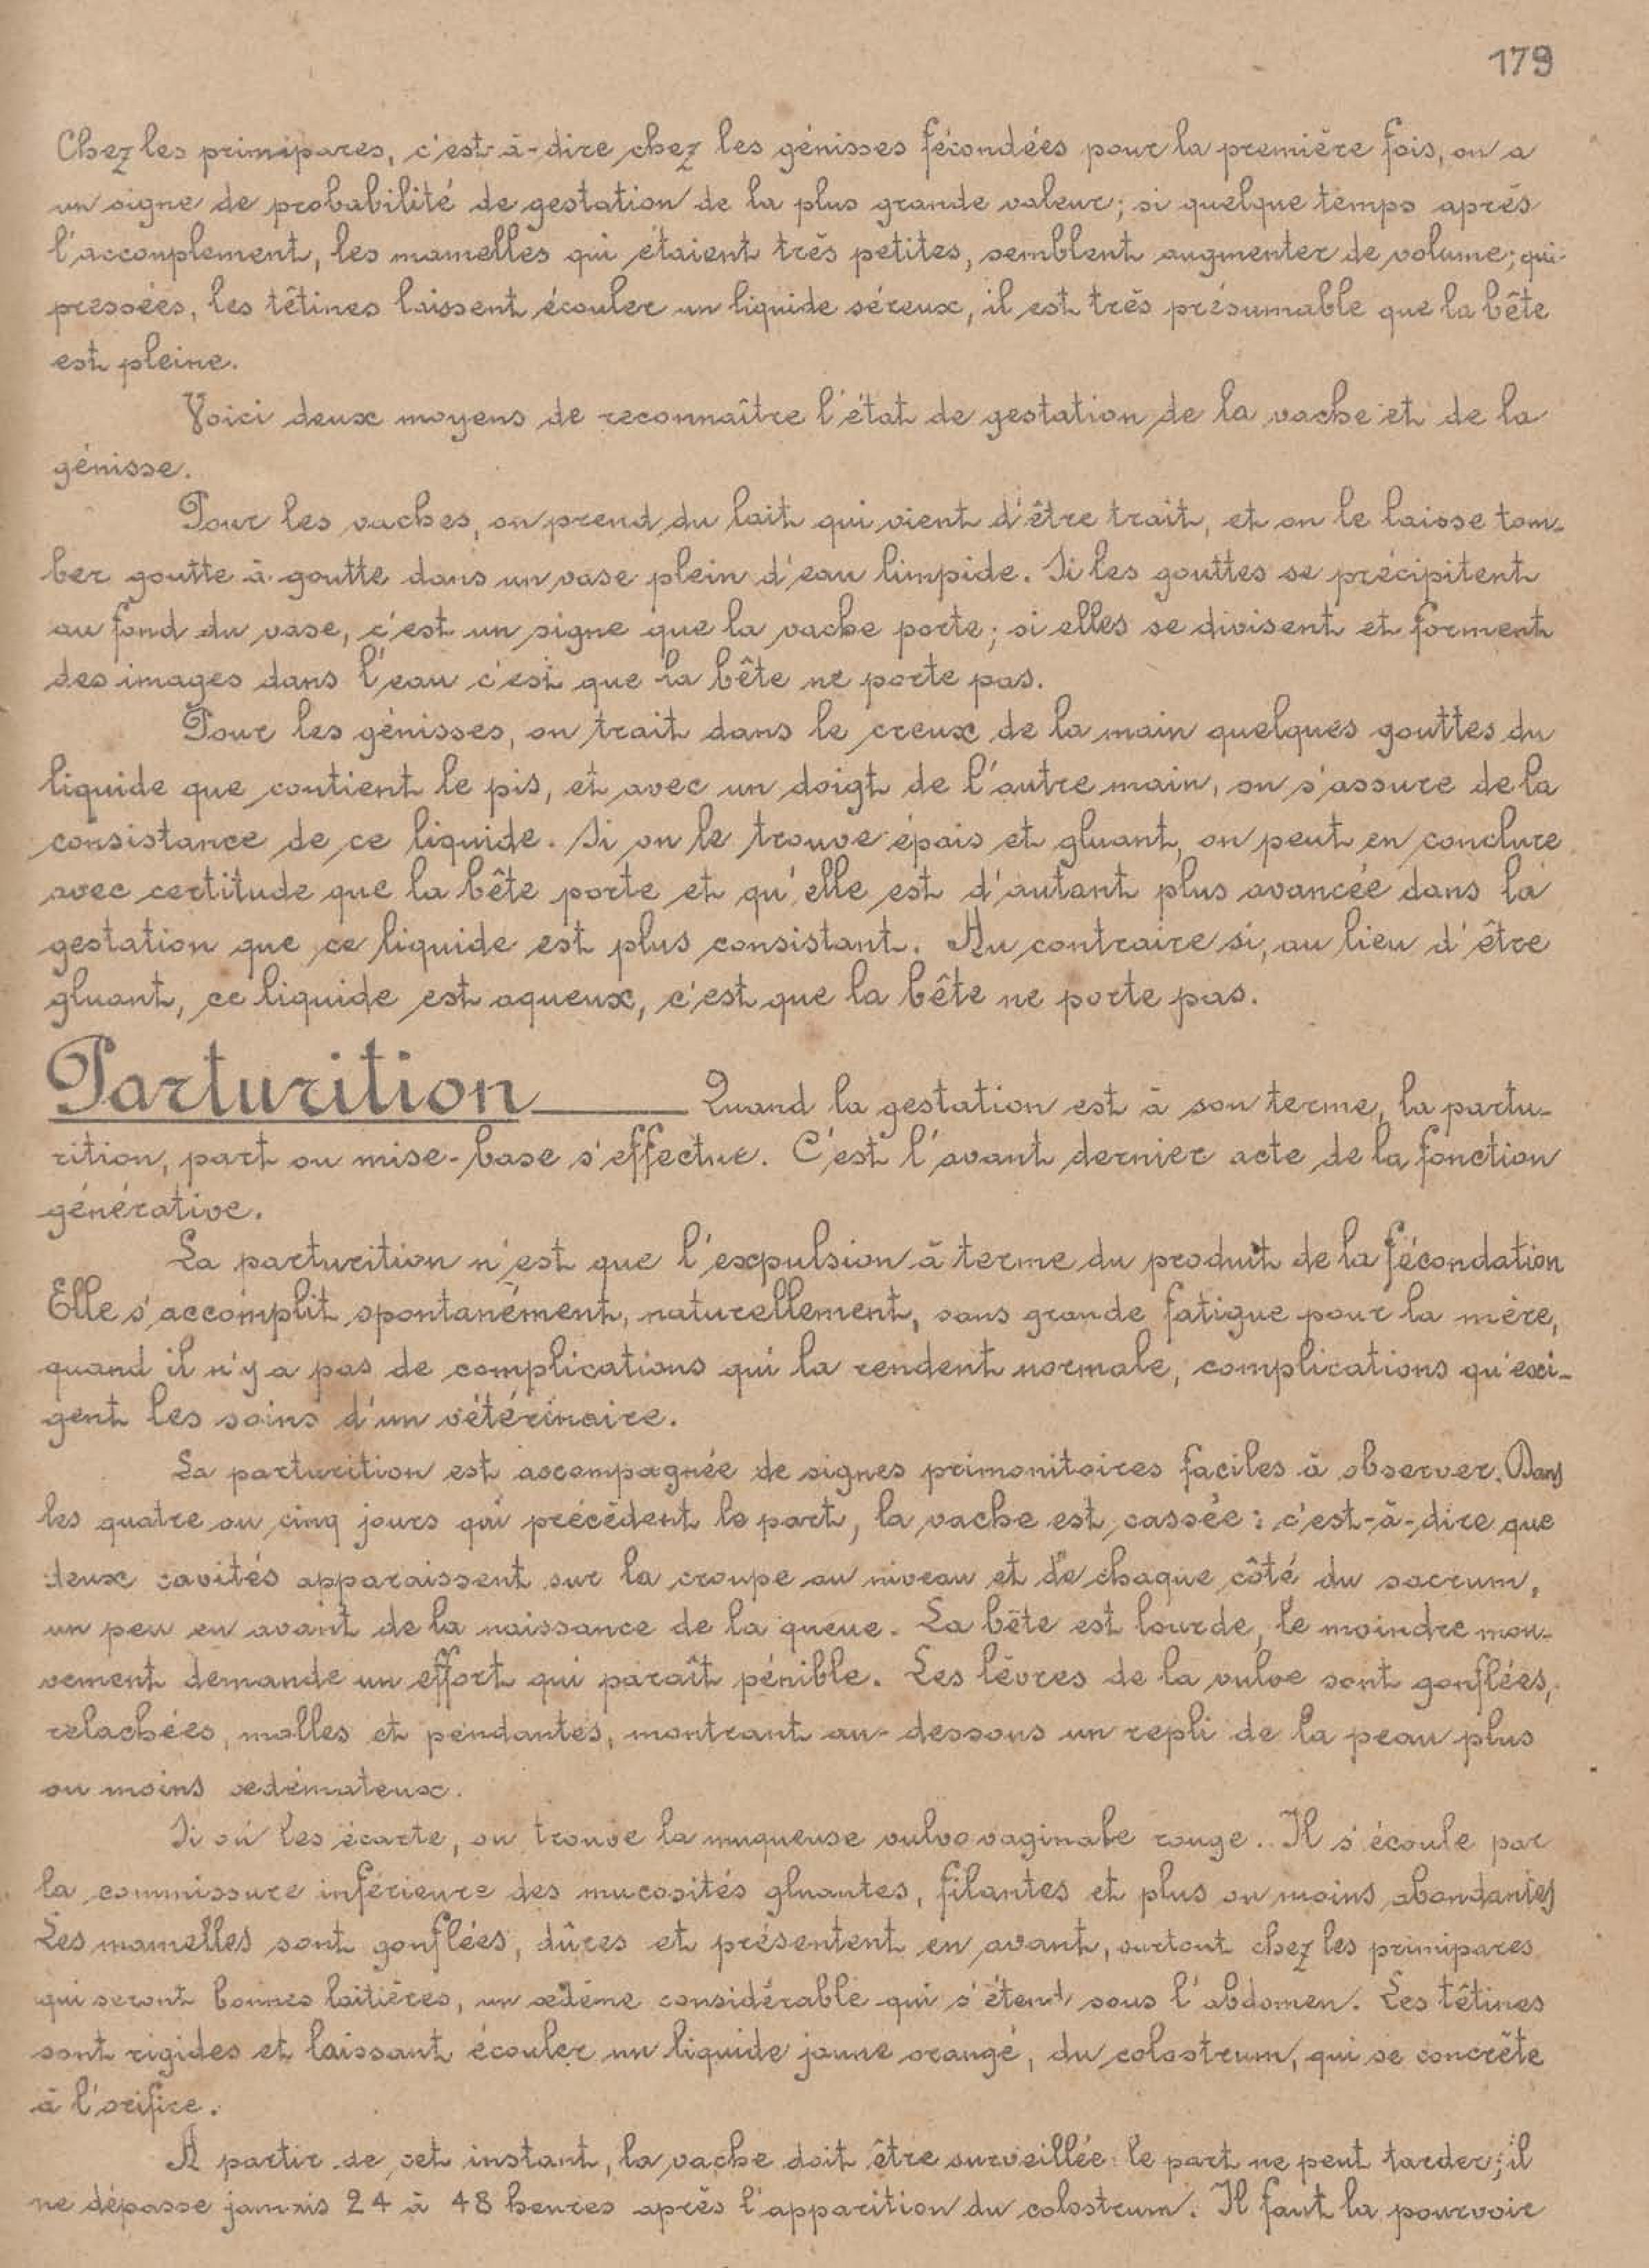 179
Chez les primipares, c'est-à-dire chez les génisses fécondées pour la première fois, on a
un signe de probabilité de gestation de la plus grande valeur; si quelque temps après
l'accouplement, les mamelles qui étaient très petites, semblent augmenter de volume; qui
pressées, les têtines laissent écouler un liquide séreux, il est très présumable que la bête
est pleine.
Voici deux moyens de reconnaître l'état de gestation de la vache et de la
génisse.
Pour les vaches, on prend du lait qui vient d'être trait, et on le laisse tom-
ber goutte à goutte dans un vase plein d'eau limpide. Si les gouttes se précipitent
au fond du vase, c'est un signe que la vache porte; si elles se divisent et forment
des images dans l'eau c'est que la bête ne porte pas.
Pour les génisses, on trait dans le creux de la main quelques gouttes du
liquide que contient le pis, et avec un doigt de l'autre main, on s'assure de la
consistance de ce liquide. Si on le trouve épais et gluant, on peut en conclure
avec certitude que la bête porte et qu'elle est d'autant plus avancée dans la
gestation que ce liquide est plus consistant. Au contraire si, au lieu d'être
gluant, ce liquide est aqueux, c'est que la bête ne porte pas.
Parturition Quand la gestation est à son terme, la partu-
rition, part ou mise-base s'effectue. C'est l'avant dernier acte de la fonction
générative.
La parturition n'est que l'expulsion à terme du produit de la fécondation
Elle s'accomplit spontanément, naturellement, sans grande fatigue pour la mère,
quand il n'y a pas de complications qui la rendent normale, complications qu'exi-
gent les soins d'un vétérinaire.
La parturition est accompagnée de signes primonitoires faciles à observer. Dans
les quatre ou cinq jours qui précèdent le part, la vache est cassée: c'est-à-dire que
deux cavités apparaissent sur la croupe au niveau et de chaque côté du sacrum,
un peu en avant de la naissance de la queue. La bête est lourde, le moindre mou-
vement demande un effort qui paraît pénible. Les lèvres de la vulve sont gonflées,
relachées, molles et pendantes, montrant au-dessous un repli de la peau plus
ou moins œdémateux.
Si on les écarte, on trouve la muqueuse vulvo vaginale rouge. Il s'écoule par
la commissure inférieure des mucosités gluantes, filantes et plus ou moins abondantes
Les mamelles sont gonflées, dûres et présentent en avant, surtout chez les primipares
qui seront bonnes laitières, un œdème considérable qui s'étend sous l'abdomen. Les têtines
sont rigides et laissant écouler un liquide jaune orangé, du colostrum, qui se concrète
à l'orifice.
A partir de cet instant, la vache doit être surveillée: le part ne peut tarder; il
ne dépasse jamais 24 à 48 heures après l'apparition du colostrum. Il faut la pourvoir